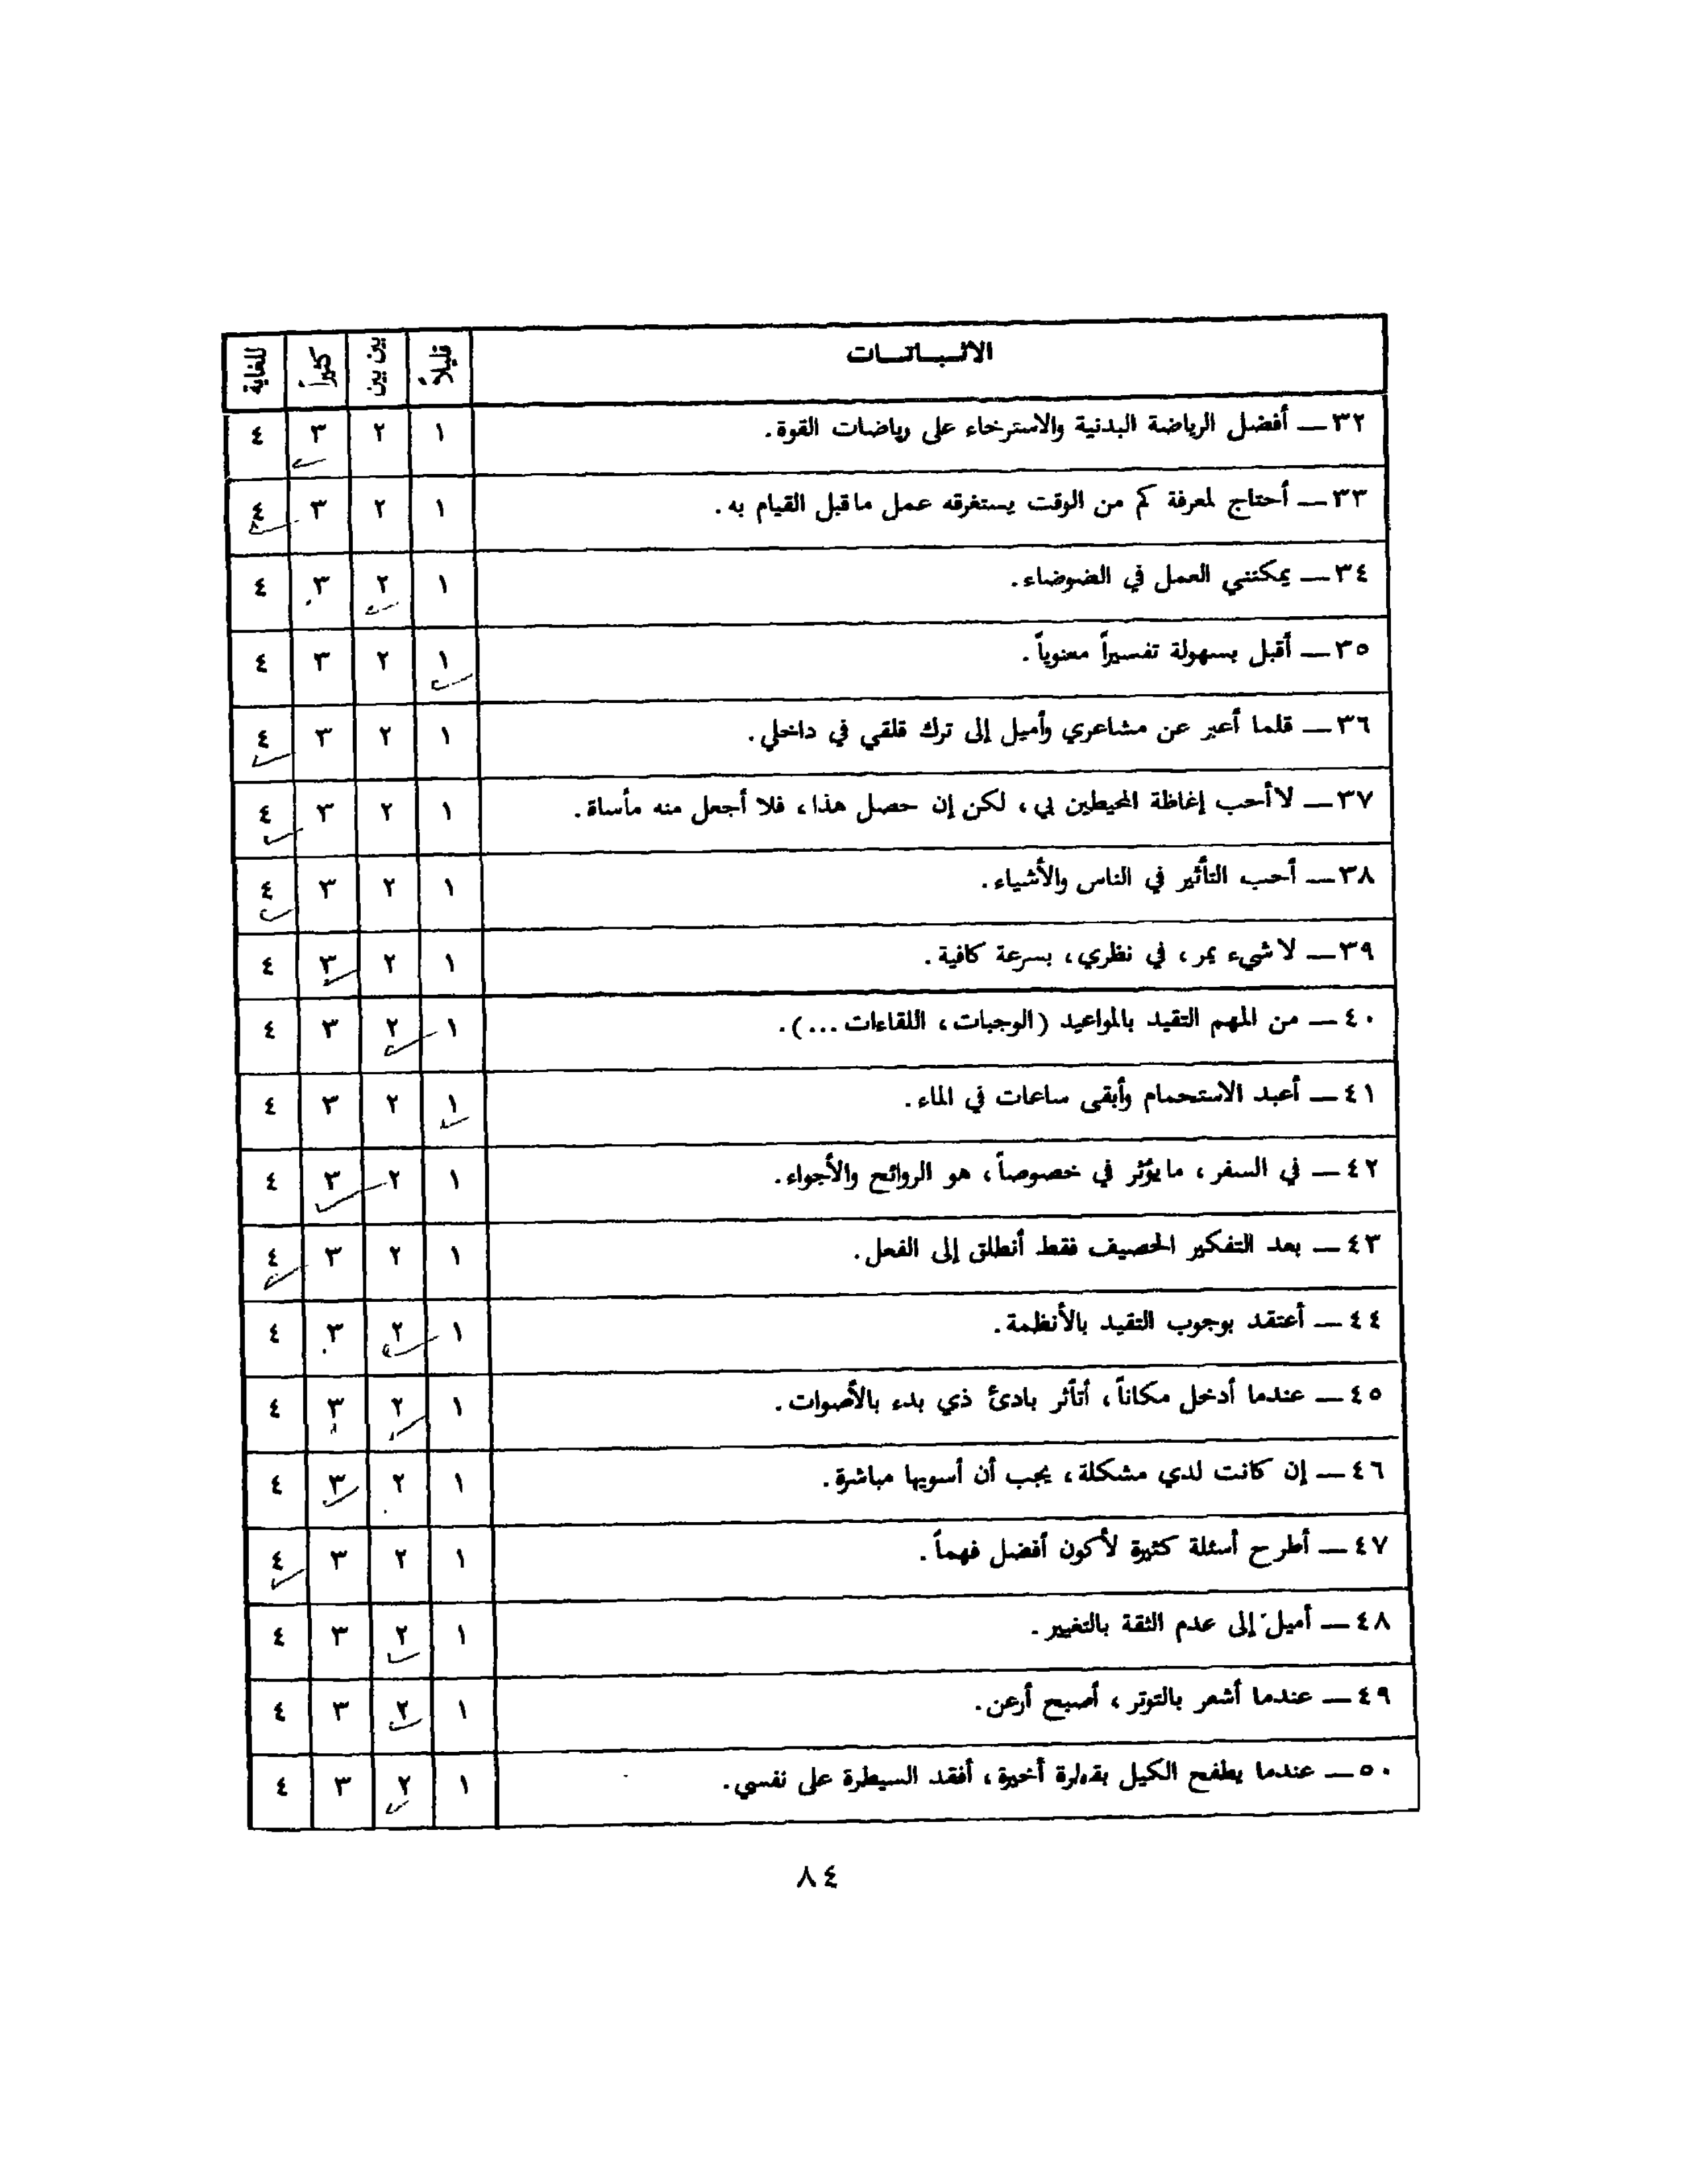 الاثـبـاتـات قليلاً بين بين كثيراً للغاية
٣٢ — أفضل الرياضة البدنية والاسترخاء على رياضات القوة. ١ ٢ ٣ ٤
٣٣ — أحتاج لمعرفة كم من الوقت يستغرقه عمل ماقبل القيام به. ١ ٢ ٣ ٤
٣٤ — يمكنني العمل في الضوضاء. ١ ٢ ٣ ٤
٣٥ — أقبل بسهولة تفسيراً معنوياً. ١ ٢ ٣ ٤
٣٦ — قلما أعبر عن مشاعري وأميل إلى ترك قلقي في داخلي. ١ ٢ ٣ ٤
٣٧ — لاأحب إغاظة المحيطين بي، لكن إن حصل هذا، فلا أجعل منه مأساة. ١ ٢ ٣ ٤
٣٨ — أحب التأثير في الناس والأشياء. ١ ٢ ٣ ٤
٣٩ — لاشيء يمر، في نظري، بسرعة كافية. ١ ٢ ٣ ٤
٤٠ — من المهم التقيد بالمواعيد (الوجبات، اللقاءات ...). ١ ٢ ٣ ٤
٤١ — أعبد الاستحمام وأبقى ساعات في الماء. ١ ٢ ٣ ٤
٤٢ — في السفر، مايؤثر في خصوصاً، هو الروائح والأجواء. ١ ٢ ٣ ٤
٤٣ — بعد التفكير الحصيف فقط أنطلق إلى الفعل. ١ ٢ ٣ ٤
٤٤ — أعتقد بوجوب التقيد بالأنظمة. ١ ٢ ٣ ٤
٤٥ — عندما أدخل مكاناً، أتأثر بادئ ذي بدء بالأصوات. ١ ٢ ٣ ٤
٤٦ — إن كانت لدي مشكلة، يجب أن أسويها مباشرة. ١ ٢ ٣ ٤
٤٧ — أطرح أسئلة كثيرة لأكون أفضل فهماً. ١ ٢ ٣ ٤
٤٨ — أميل إلى عدم الثقة بالتغيير. ١ ٢ ٣ ٤
٤٩ — عندما أشعر بالتوتر، أصبح أرعن. ١ ٢ ٣ ٤
٥٠ — عندما يطفح الكيل بقطرة أخيرة، أفقد السيطرة على نفسي. ١ ٢ ٣ ٤
٨٤